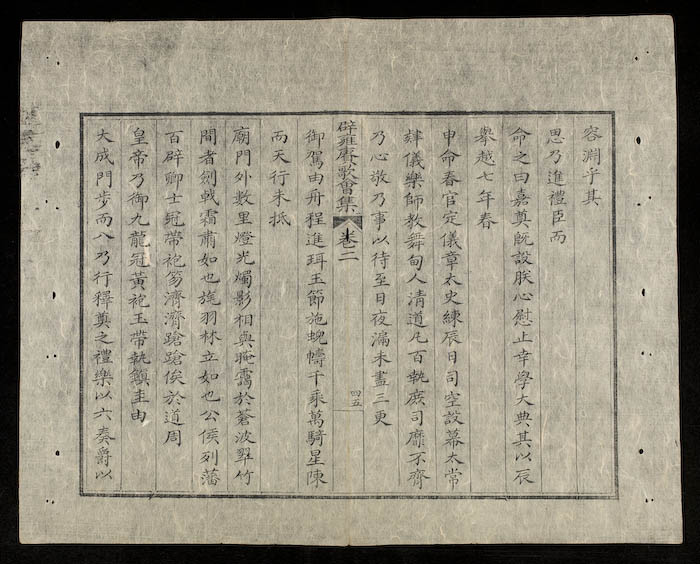 容淵乎其
思乃進禮臣而
命之曰嘉奠既設朕心慰止幸學大典其以辰
舉越七年春
申命春官定儀章太史練辰日司空設幕太常
肄儀樂師教舞甸人清道凡百執庶司靡不齊
乃心敬乃事以待至日夜漏未盡三更
辟雍賡歌會集 卷二
四五
御駕由舟程進珥玉節施蜺幬千乘萬騎星陳
而天行未抵
廟門外數里燈光燭影相與晻靄於蒼波翠竹
間者劍戟霜肅如也旄羽林立如也公侯列藩
百辟卿士冠帶袍笏濟濟蹌蹌俟於道周
皇帝乃御九龍冠黃袍玉帶執鎮圭由
大成門步而入乃行釋奠之禮樂以六奏爵以